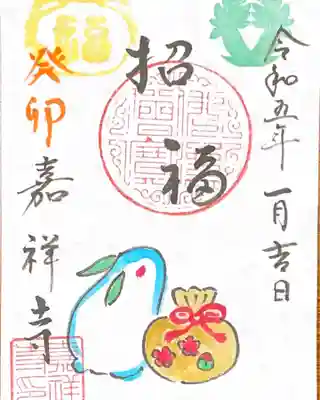 令和五年一月吉日
招福
癸卯
嘉祥寺
福